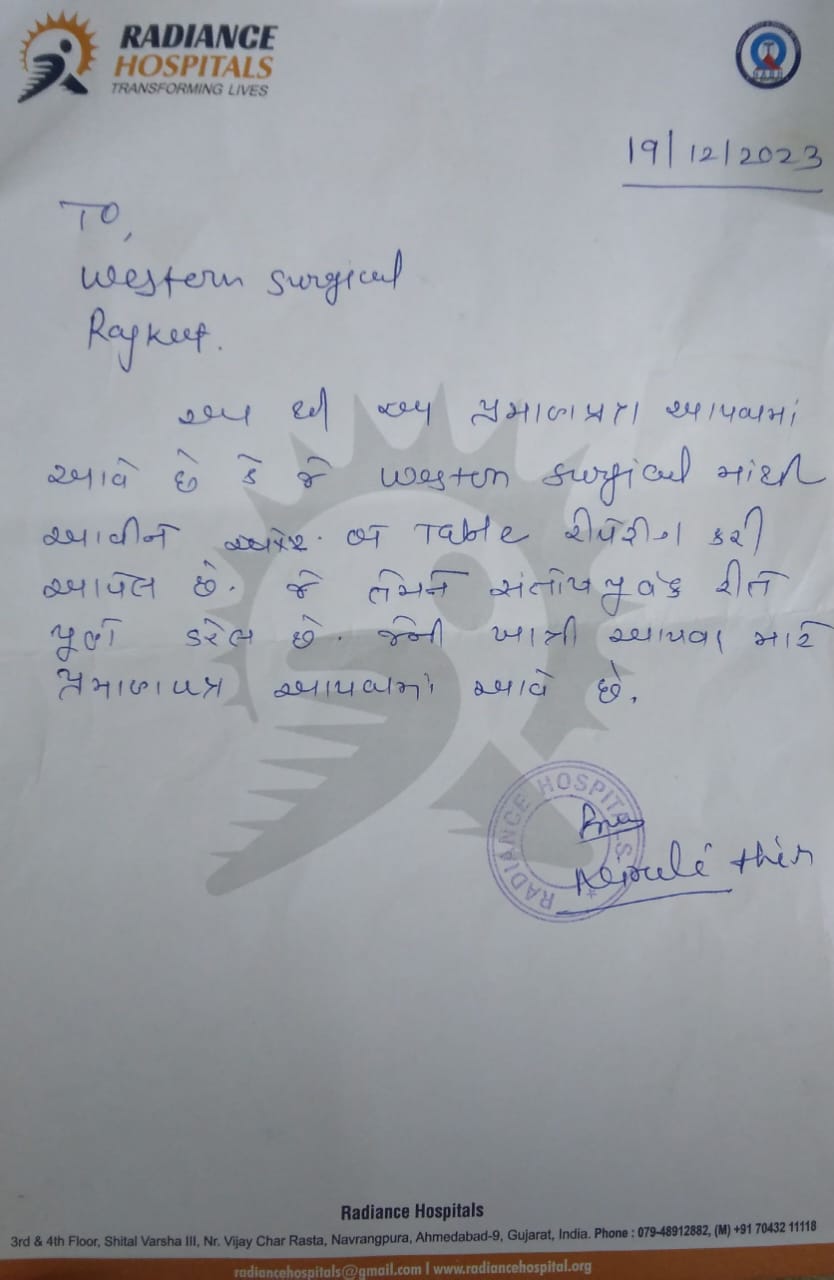 RADIANCE
HOSPITALS
TRANSFORMING LIVES
19/12/2023
TO,
Western Surgical
Rajkot.
આ પ્રમાણપત્ર આપવામાં
આવે છે કે જે Western Surgical માંથી
આવીને Table રીપેરીંગ કરી
આપેલ છે. જે તેમને સંતોષપુર્વક રીતે
પુર્ણ કરેલ છે. જેની ખાત્રી આપવા માટે
પ્રમાણપત્ર આપવામાં આવે છે.
RADIANCE HOSPITALS
Radiance Hospitals
3rd & 4th Floor, Shital Varsha III, Nr. Vijay Char Rasta, Navrangpura, Ahmedabad-9, Gujarat, India. Phone : 079-48912882, (M) +91 70432 11118
radiancehospitals@gmail.com I www.radiancehospital.org